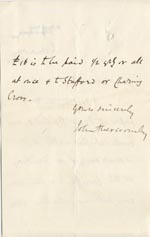 £16 is to be paid ½ yrly or all
at once & to Stafford or Charing
Cross.
Yours sincerely
John